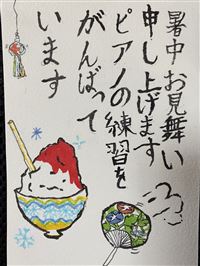 暑中お見舞い
申し上げます
ピアノの練習を
がんばって
います